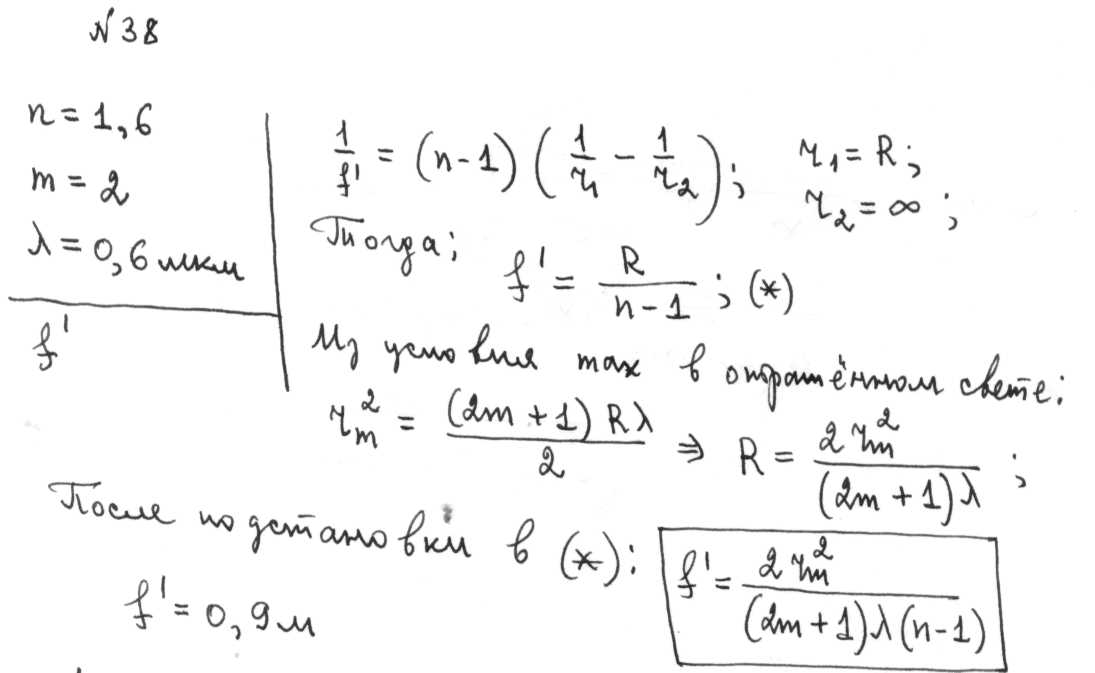 №38
n = 1,6
m = 2
λ = 0,6 мкм
f'
1/f' = (n-1) (1/r₁ - 1/r₂); r₁ = R; r₂ = ∞;
Тогда; f' = R/(n-1); (*)
Из условия max в отражённом свете:
r²ₘ = (2m+1)Rλ/2 ⇒ R = 2r²ₘ/((2m+1)λ);
После подстановки в (*): f' = 2r²ₘ/((2m+1)λ(n-1))
f' = 0,9 м